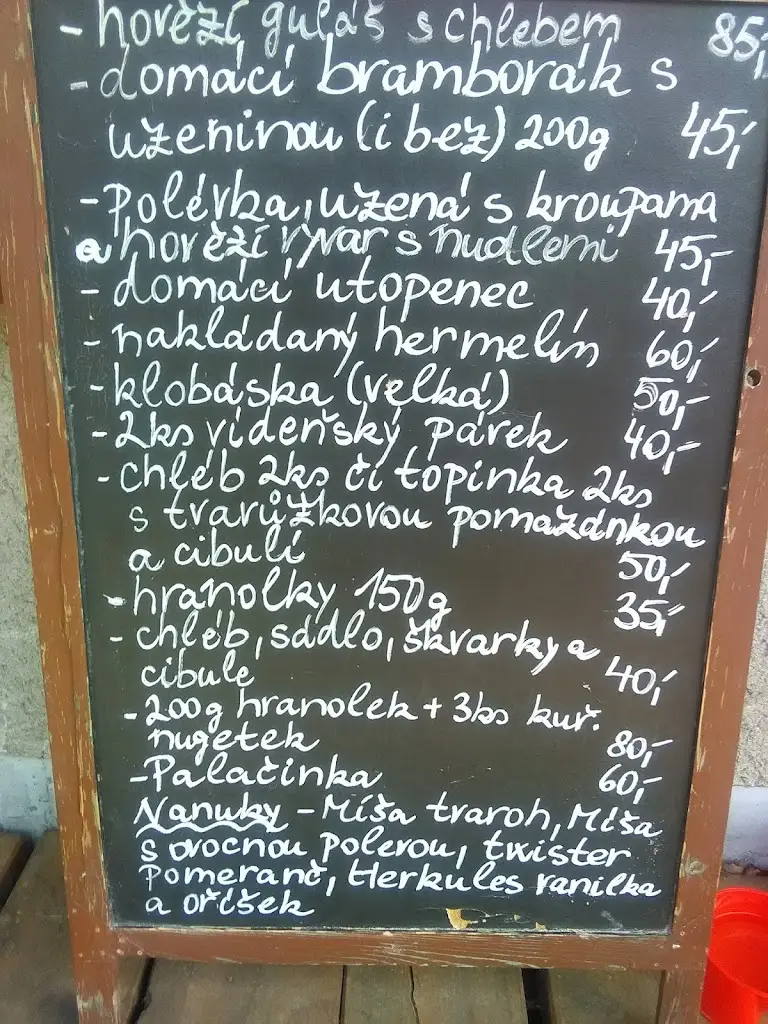 - hovězí guláš s chlebem 85,-
- domácí bramborák s
uzeninou (i bez) 200g 45,-
- polévka, uzená s kroupama
a hovězí vývar s nudlemi 45,-
- domácí utopenec 40,-
- nakládaný hermelín 60,-
- klobáska (velká) 50,-
- 2ks vídeňský párek 40,-
- chléb 2ks či topinka 2ks
s tvarůžkovou pomazánkou
a cibulí 50,-
- hranolky 150g 35,-
- chléb, sádlo, škvarky a
cibule 40,-
- 200g hranolek + 3ks kuř.
nugetek 80,-
- Palačinka 60,-
Nanuky - Míša tvaroh, Míša
s ovocnou polevou, twister
pomeranč, Herkules vanilka
a oříšek